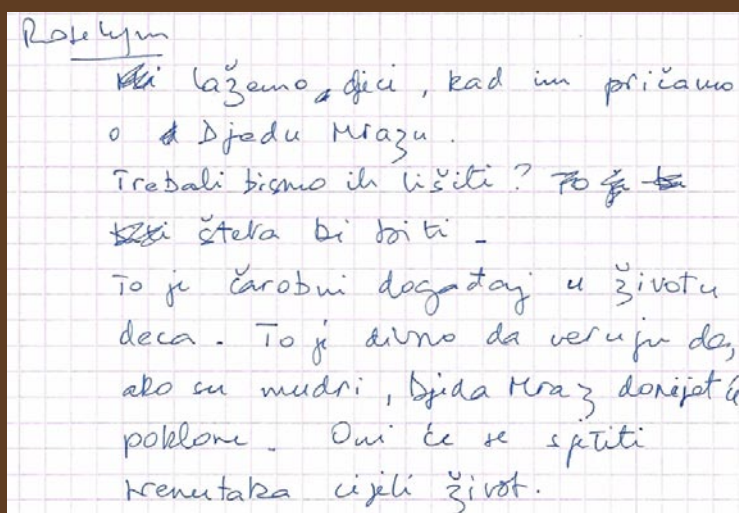 Roselyn
lažemo djeci, kad im pričamo
o Djedu Mrazu.
Trebali bismo ih lišiti?
šteta bi biti -
To je čarobni događaj u životu
deca. To je divno da veruju da,
ako su mudri, Djeda Mraz donijet će
poklone. Oni će se sjetiti
trenutaka cijeli život.